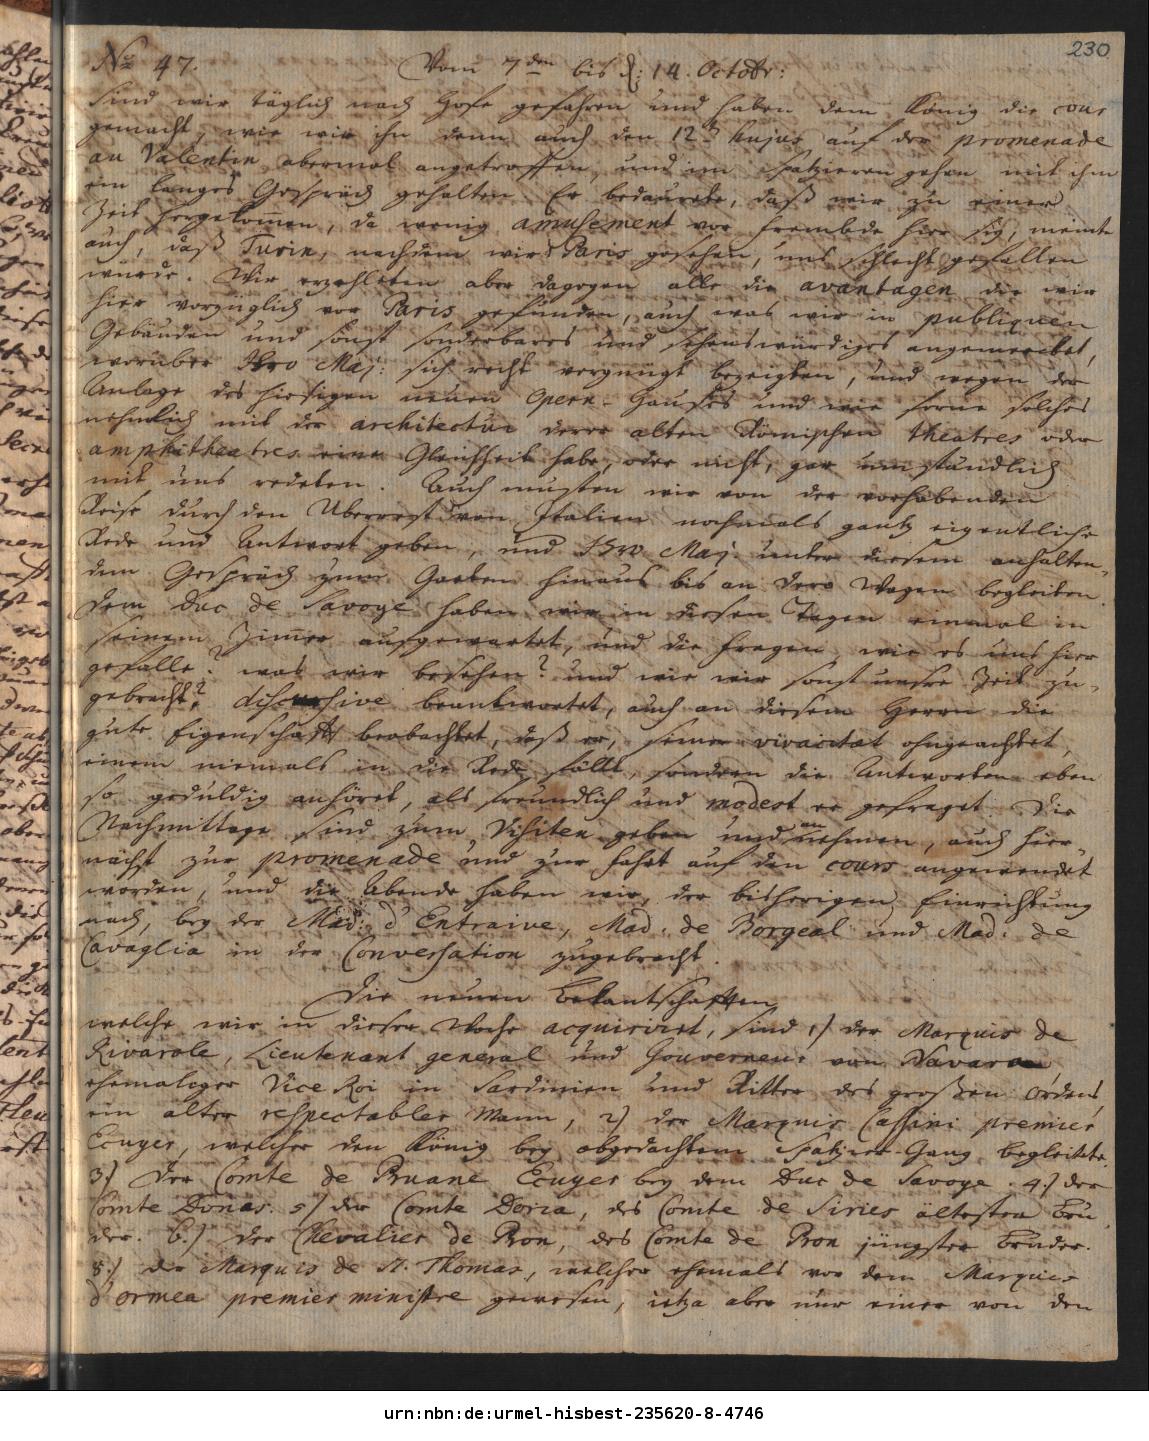 230
No 47. Vom 7den bis d: 14. Octobr:
sind wir täglich nach Hofe gefahren und haben dem König die cour
gemacht, wie wir ihn denn auch den 12t hujus auf der promenade
au Valentin abermal angetroffen, und im spatzieren gehen mit ihm
ein langes Gespräch gehalten. Er bedaurete, daß wir zu einer
Zeit hergekom̅en, da wenig amusement vor frembde hier sey, meinte
auch, daß Turin, nachdem wir Paris gesehen, uns schlecht gefallen
würde. Wir erzehleten aber dagegen alle die avantagen die wir
hier vorzüglich vor Paris gefunden, auch was wir in publiquen
Gebäuden und sonst sonderbares und sehenswürdiges angemercket,
worüber Ihro Maj: sich recht vergnügt bezeigten, und wegen der
Anlage des hiesigen neuen Opern-Hauses und wie ferne solches
nehmlich mit der architectur derer alten Römischen theatres oder
amphitheatres eine Gleichheit habe, oder nicht, gar umständlich
mit uns redeten. Auch musten wir von der vorhabenden
Reise durch den Uberrest von Italien nochmals gantz eigentliche
Rede und Antwort geben, und Ihro Maj. unter diesem anhalten-
den Gespräch zum Garten hinaus bis an dero Wagen begleiten.
Dem Duc de Savoye haben wir in diesen Tagen einmal in
seinem Zim̅er aufgewartet, und die fragen, wie es uns hier
gefalle? was wir besehen? und wie wir sonst unsre Zeit zu-
gebracht? discursive beantwortet, auch an diesem Herrn die
gute Eigenschafft beobachtet, daß er, seiner vivacitat ohngeachtet,
einem niemals in die Rede fällt, sondern die Antworten eben
so geduldig anhöret, als freundlich und modest er gefraget. Die
Nachmittage sind zum Visiten geben und annehmen, auch hier-
nächst zur promenade und zur fahrt auf den cours angewendet
worden, und die Abende haben wir, der bisherigen Einrichtung
nach, bey der Mad: d'Entraive, Mad: de Borgeal und Mad: de
Cavaglia in der Conversation zugebracht.
Die neuen Bekantschafften
welche wir in dieser Woche acquiriret, sind 1.) der Marquis de
Rivarole, Lieutenant general und Gouverneur von Navara
ehemaliger Vice Roi in Sardinien und Ritter des großen Ordens,
ein alter respectabler Mann, 2.) der Marquis Cassani premier
Ecuyer, welcher den König bey abgedachtem Spatzier-Gang begleitete.
3.) Der Comte de Pruane Ecuyer bey dem Duc de Savoye. 4.) der
Comte Donas. 5.) der Comte Doria, des Comte de Siries ältester Bru
der. 6.) Der Chevalier de Pron, des Comte de Pron jüngster Bruder.
8.) der Marquis de St. Thomas, welcher ehemals vor dem Marquis
d'ormea premier ministre gewesen, ietzo aber nur einer von den
urn:nbn:de:urmel-hisbest-235620-8-4746